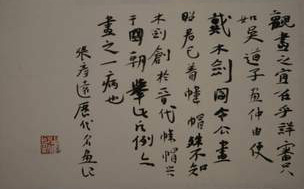 觀畫之宜在乎詳審只
如吳道子画仲由便
戴木劍閻令公畫
昭君已着幃帽殊不知
木劍創於晉代幃帽興
于國朝舉此凡例亦
畫之一病也
張彥遠歷代名画記